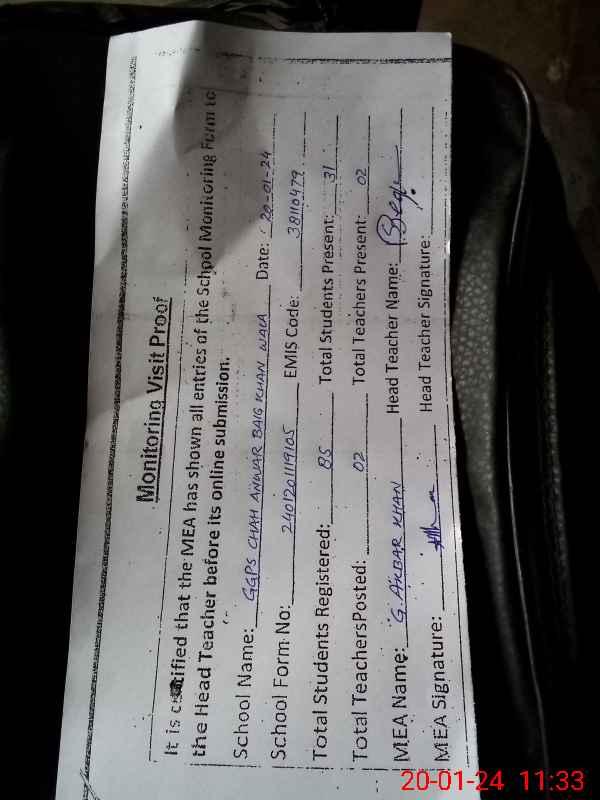 Monitoring Visit Proof
It is certified that the MEA has shown all entries of the School Monitoring Form to
the Head Teacher before its online submission.
School Name: GGPS CHAH ANWAR BAIG KHAN WALA Date: 20-01-24
School Form No: 2401201119105 EMIS Code: 38110479
Total Students Registered: 85 Total Students Present: 31
Total TeachersPosted: 02 Total Teachers Present: 02
MEA Name: G. AKBAR KHAN Head Teacher Name:
MEA Signature: Head Teacher Signature:
20-01-24 11:33